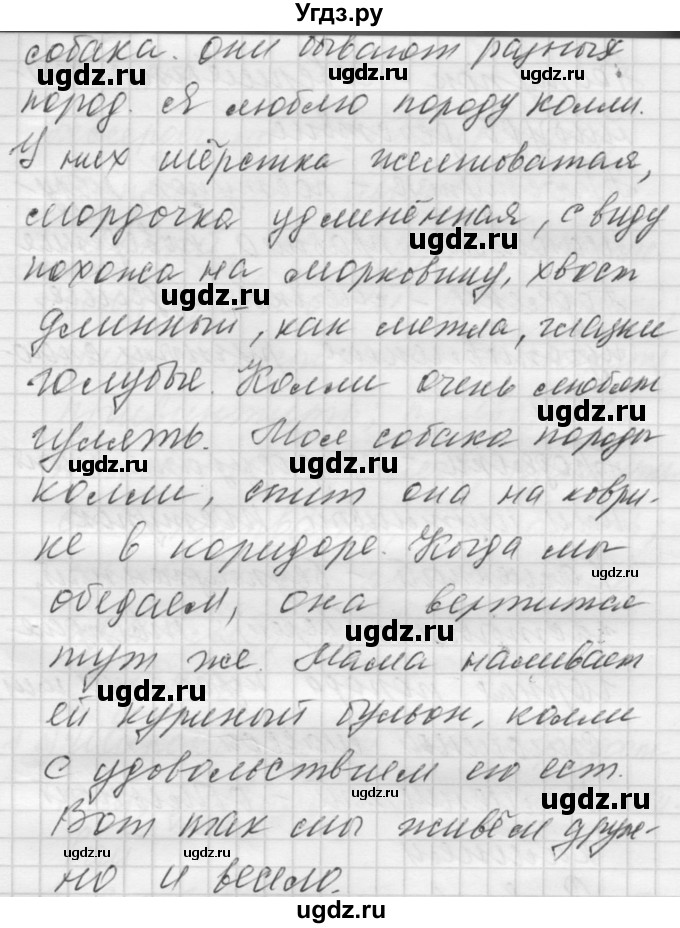 Угдз.ру
собака. они бывают разных
ugdz.ru ugdz.ru
пород. Я люблю породу колли.
У них шёрстка желтоватая,
мордочка удлинённая, с виду
ugdz.ru
похожа на морковину, хвост
ugdz.ru
длинный, как метла, глазки
голубые. Колли очень любят
ugdz.ru
гулять. Моя собака породы
ugdz.ru ugdz.ru
колли, спит она на коври-
ке в коридоре. Когда мы
ugdz.ru
обедаем, она вертится
ugdz.ru
тут же. Мама наливает
ugdz.ru
ей куриный бульон, колли
с удовольствием его ест.
ugdz.ru
Вот так мы живём друж-
ugdz.ru ugdz.ru
но и весело.
ugdz.ru